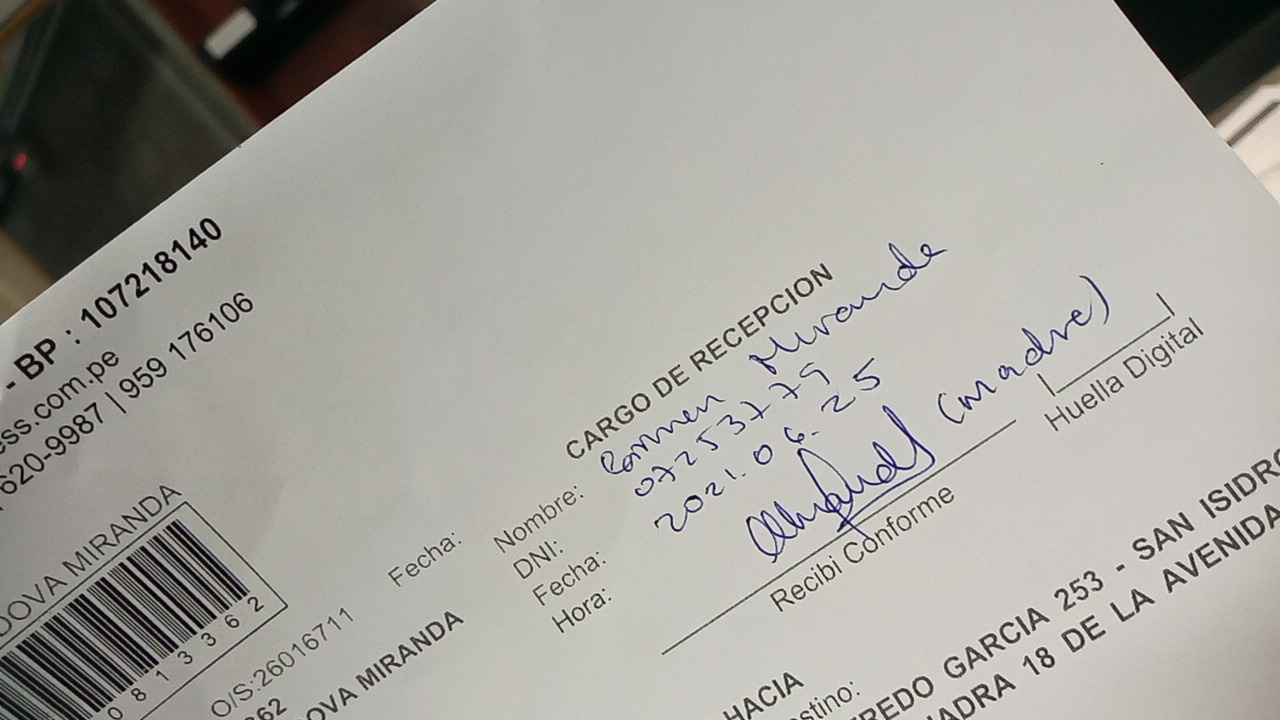 - BP : 107218140
ess.com.pe
620-9987 | 959 176106
DOVA MIRANDA
0 8 1 3 3 6 2
O/S:26016711
262
OVA MIRANDA
Fecha:
CARGO DE RECEPCION
Nombre: Carmen Miranda
DNI: 07253779
Fecha: 2021.06.25
Hora:
(madre)
Recibi Conforme
Huella Digital
HACIA
stino:
REDO GARCIA 253 - SAN ISIDRO
ADRA 18 DE LA AVENIDA